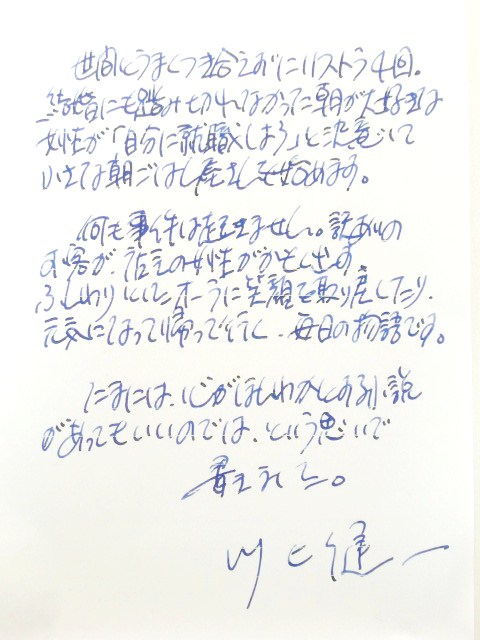 世間とうまくつき合えずにリストラ4回。
結婚にも踏み切れなかった朝が大好きな
女性が「自分に就職しよう」と決意して
小さな朝ごはん屋さんを始めます。
何も事件は起きません。訳ありの
お客が、店主の女性がかもし出す、
ふんわりとしたオーラに笑顔を取り戻したり、
元気になって帰って行く、毎日の物語です。
たまには、心がほんわかとする小説
があってもいいのでは、という思いで
書きました。
川上健一